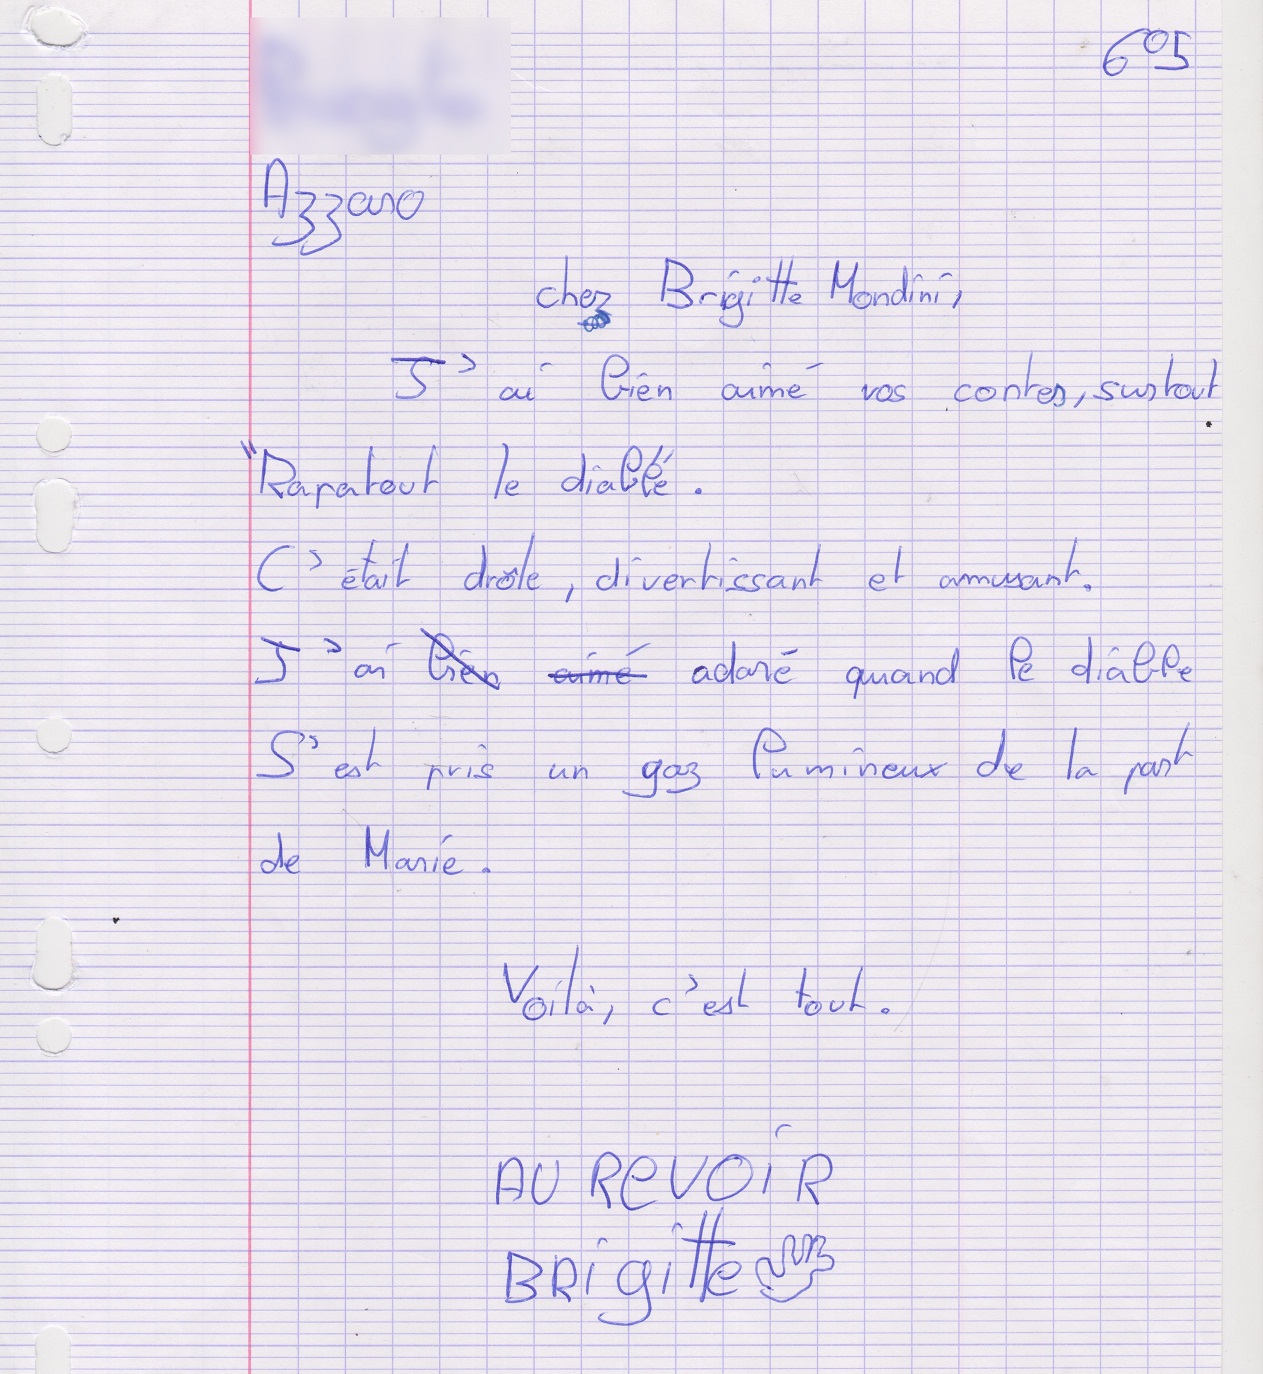 6°5
Azzaro
chez Brigitte Mondini,
J'ai bien aimé vos contes, surtout
"Rapatout le diablé.
C'était drôle, divertissant et amusant.
J'ai bien aimé adoré quand le diable
S'est pris un gaz lumineux de la part
de Marie.
Voilà, c'est tout.
AU REVOIR
BRigitte